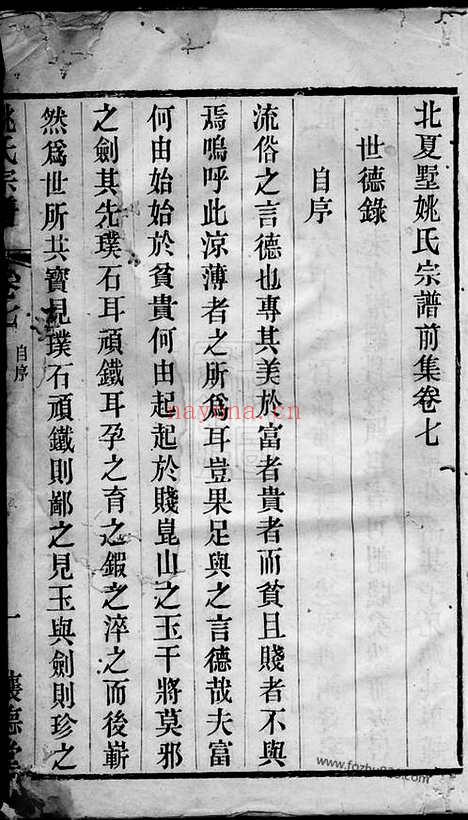 北夏墅姚氏宗譜前集卷七
世德錄
自序
流俗之言德也專其美於富者貴者而貧且賤者不與
焉嗚呼此涼薄者之所爲耳豈果足與之言德哉夫富
何由始始於貧貴何由起起於賤崑山之玉干將莫邪
之劍其先璞石耳頑鐵耳孕之育之鍜之淬之而後嶄
然爲世所共寶見璞石頑鐵則鄙之見玉與劍則珍之
姚氏宗譜
卷七
自序
一
nayona.cn
www.fozhu920.com